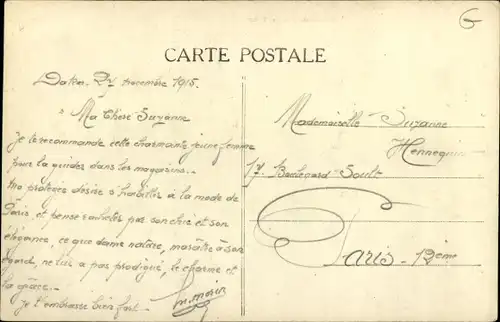 CARTE POSTALE
Dakar, 27 novembre 1915.
Ma Chère Suzanne
je te recommande cette charmante jeune femme
pour la guider dans les magasins.
Ma protégée désire s'habiller à la mode de
Paris et pense racheter par son chic et son
élégance, ce que dame nature, marâtre à son
égard, ne lui a pas prodigué, le charme et
la grâce.
je t'embrasse bien fort.
Mademoiselle Suzanne
Hennequin
17, Boulevard Soult
Paris - 12ème